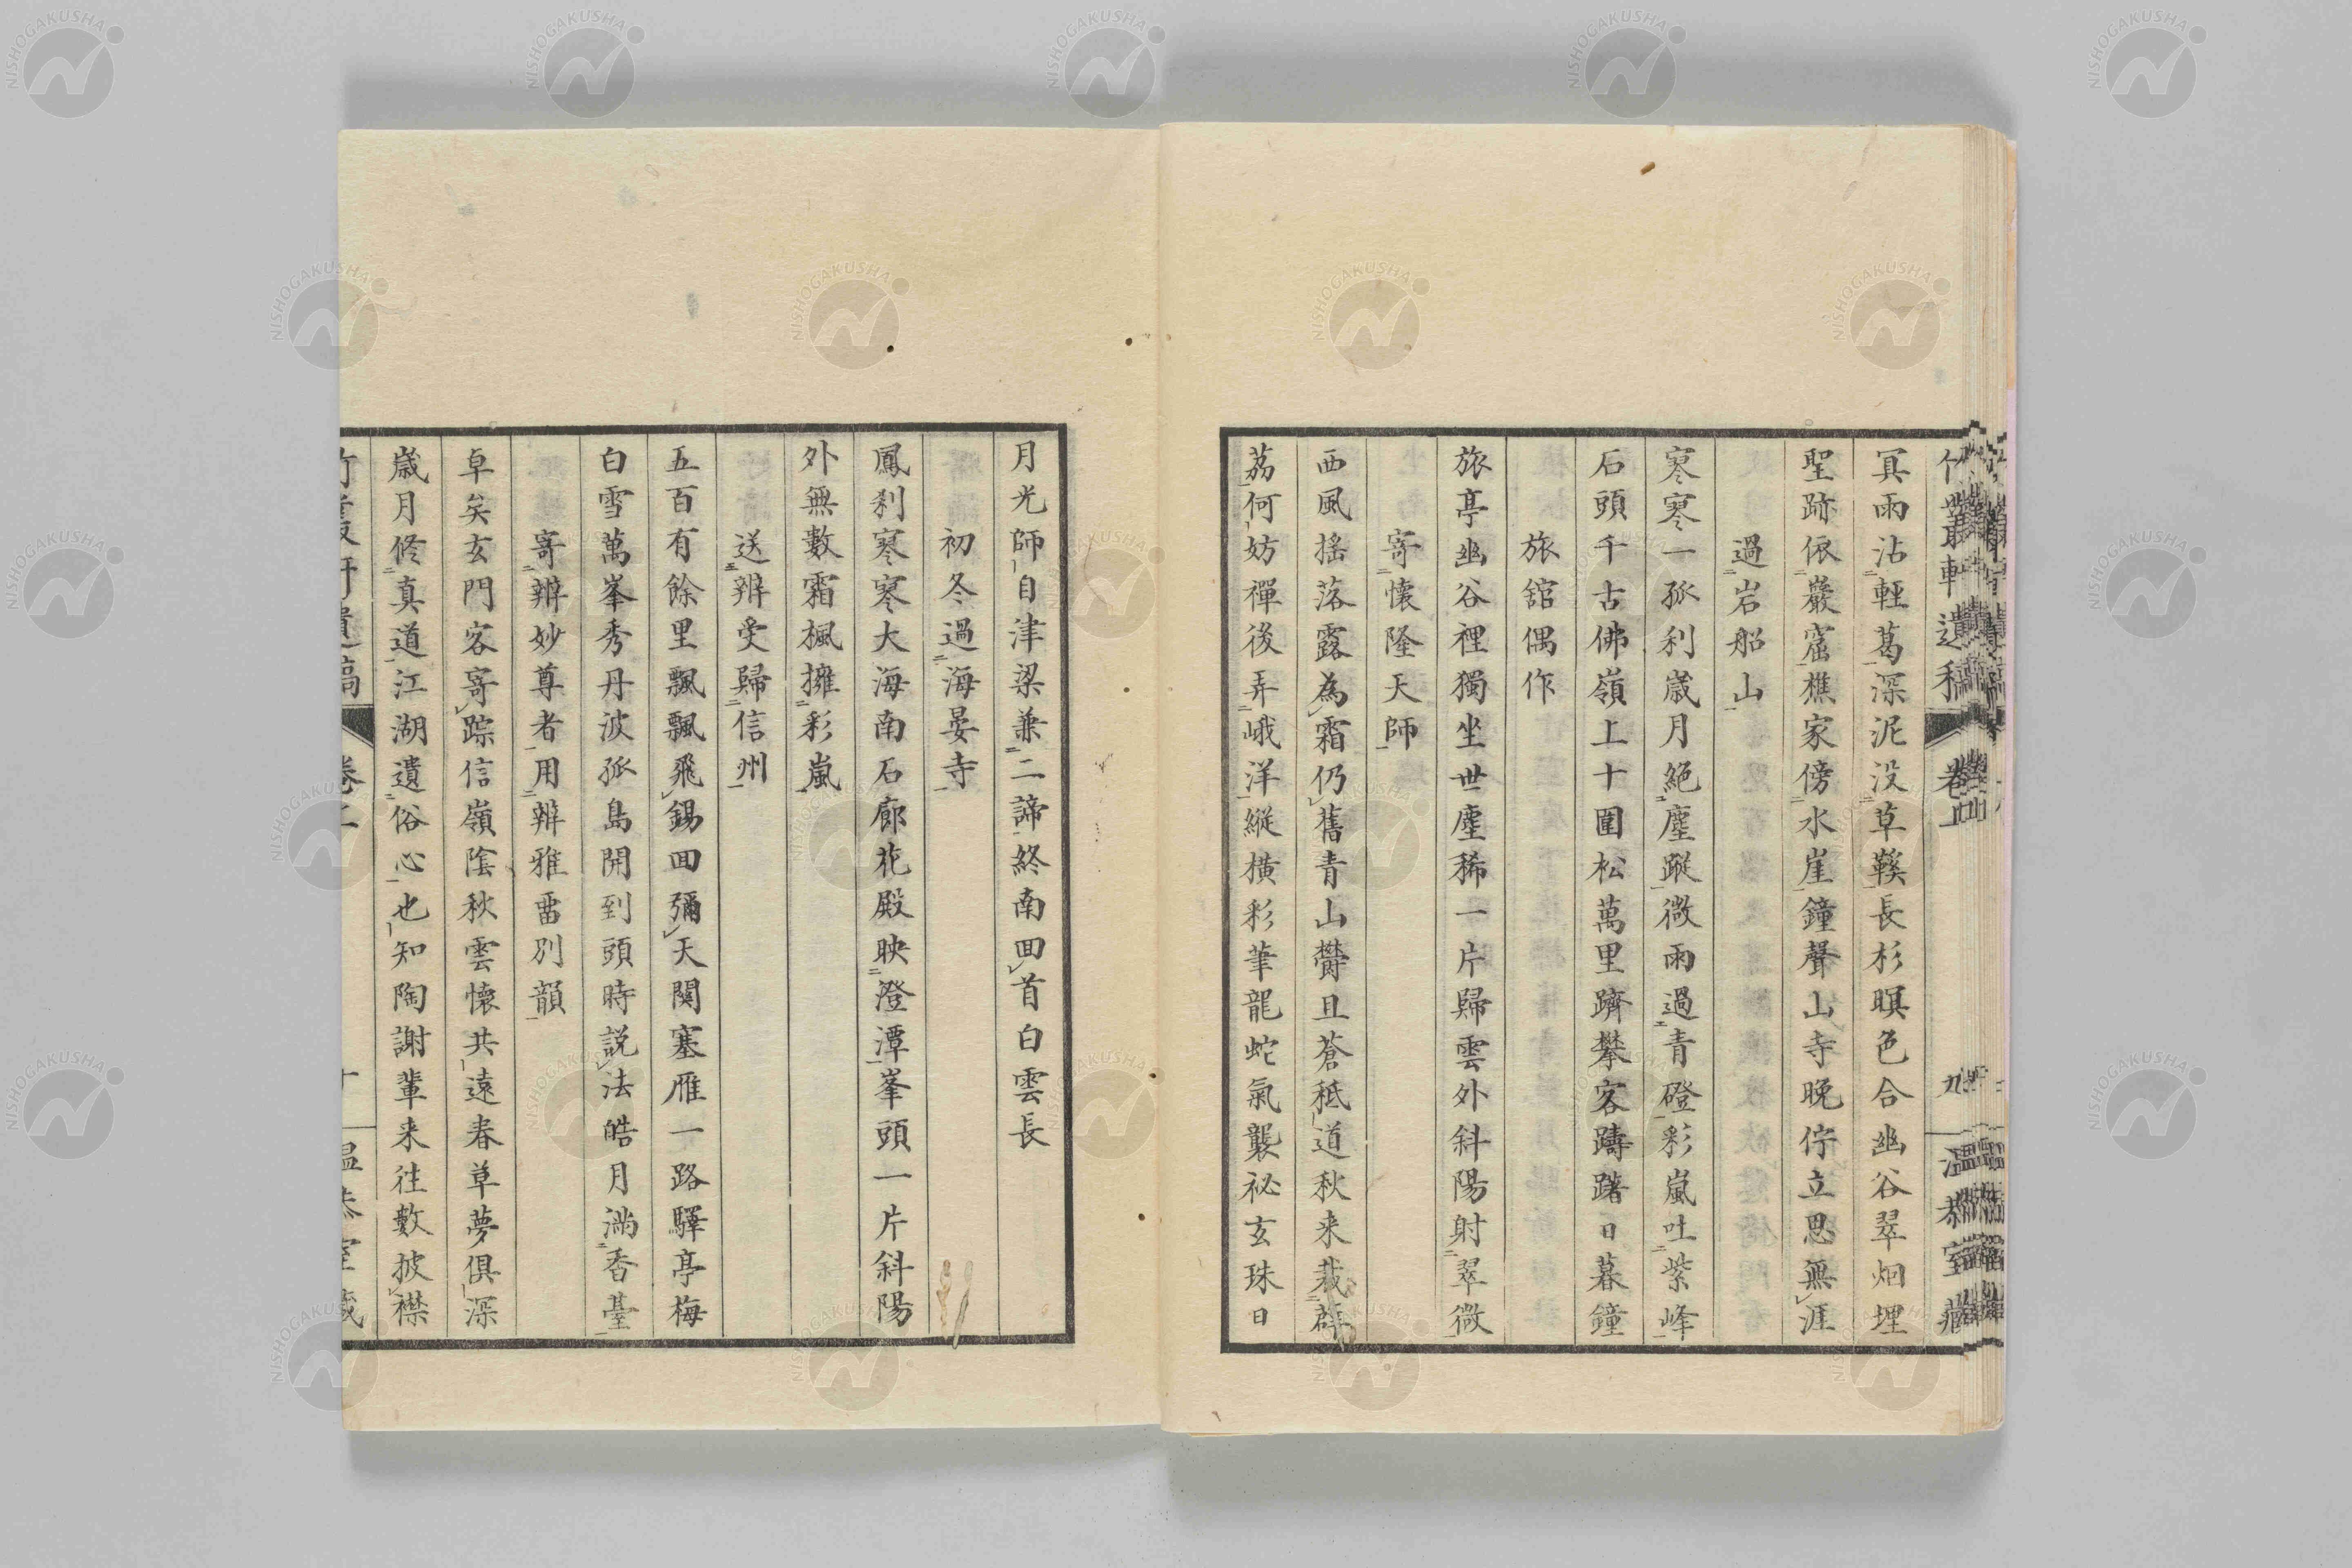 冥雨沾輕葛深泥没草鞵長杉暝色合幽谷翠烟埋
聖跡依巖窟樵家傍水崖鐘聲山寺晩佇立思無涯
過岩船山
寒寒一孤刹歳月絶塵蹤微雨過青磴彩嵐吐紫峰
石頭千古佛嶺上十圍松萬里躋攀客躊躇日暮鐘
旅舘偶作
旅亭幽谷裡獨坐世塵稀一片歸雲外斜陽射翠微
寄懷隆天師
西風揺落露為霜仍舊青山欝且蒼秪道秋来裁薜
茘何妨禪後弄峨洋縦横彩筆龍蛇氣襲祕玄珠日
月光師自津梁兼二諦終南回首白雲長
初冬過海晏寺
鳳刹寒寒大海南石廊花殿映澄潭峯頭一片斜陽
外無數霜楓擁彩嵐
送辨受歸信州
五百有餘里飄飄飛錫回彌天関塞雁一路驛亭梅
白雪萬峯秀丹波孤島開到頭時説法皓月満香臺
寄辨妙尊者用辨雅畱別韻
卓矣玄門客寄踪信嶺陰秋雲懷共遠春草夢俱深
歳月修真道江湖遺俗心也知陶謝輩来往數披襟
NISHOGAKUSHA